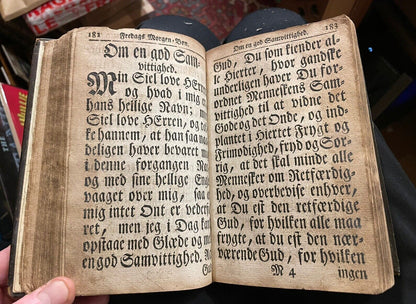 182 Fredags Morgen-Bøn.
Om en god Sam-
vittighed.
Min Siel love HErren
og hvad i mig er
hans hellige Navn; min
Siel love HErren, og tak-
ke hannem, at han saa naa-
deligen haver bevaret mig
i denne forgangen Nat
og med sine hellige Eng
vaaget over mig, saa at
mig intet Ont er vederfa-
ret, men jeg i Dag kan
opstaae med Glæde og med
en god Samvittighed. Na
Gud
Om en god Samvittighed. 183
Gud, Du som kiender al-
le Hierter, hvor gandske
underligen haver Du for-
ordnet Menneskens Sam-
vittighed til at vidne det
Gode og det Onde, og ind-
plantet i Hiertet Frygt og
Frimodighed, fryd og Sor-
rig, at det skal minde alle
Mennesker om Retfærdig-
hed, og overbevise enhver,
at Du est den retfærdige
GUd, for hvilken alle maa
frygte, at du est den nær-
værende Gud, for hvilken
M 4 ingen